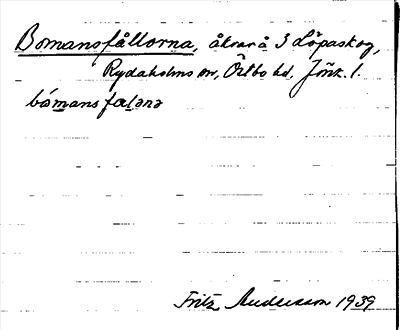 Bomansfållorna, åkrar å 3 Löpaskog,
Rydaholms sn, Östbo hd, Jönk. l.
bómans fɷlənə
Fritz Andersson 1939